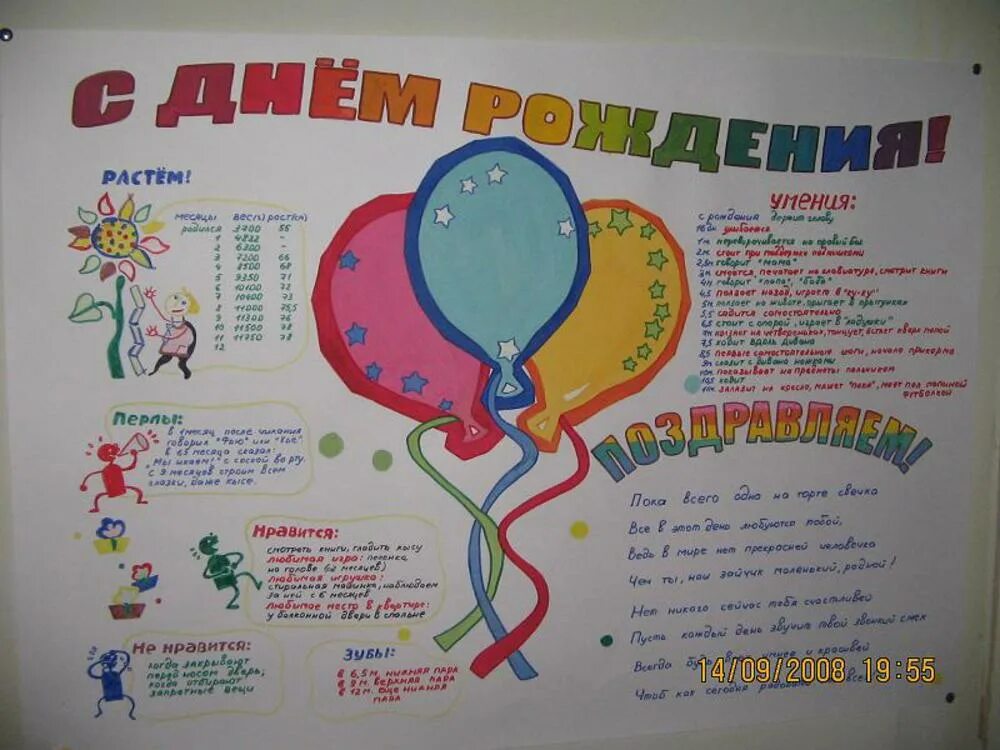 С ДНЁМ РОЖДЕНИЯ!
РАСТЁМ!
месяцы вес(г) рост(см)
родился 3700 55
1 4822 -
2 6300 -
3 7200 66
4 8500 68
5 9250 71
6 10100 72
7 10600 73
8 11000 75,5
9 11300 76
10 11500 78
11 11750 78
12
Перлы:
в 1 месяц после чихания
говорил "Фою" или "Кые".
в 6,5 месяца сказал:
"Мы икаем!" с соской во рту.
С 9 месяцев строит всем
глазки, даже кысе.
Нравится:
смотреть книги, гладить кысу
любимая игра: пеленка
на голове (2 месяцев)
любимая игрушка:
стиральная машинка, наблюдаем
за ней с 6 месяцев
любимое место в квартире:
у балконной двери в спальне
Не нравится:
когда закрывают
перед носом дверь;
когда отбирают
запретные вещи
ЗУБЫ:
в 6,5 м. нижняя пара
в 9 м. верхняя пара
в 12 м. еще нижняя
пара
УМЕНИЯ:
с рождения держит голову
16дн улыбается
1м переворачивается на правый бок
2м стоит при поддержке подмышками
2,5м говорит "мама"
3м смеется, печатает на клавиатуре, смотрит книги
4м говорит "папа", "баба"
4,5 ползает назад, играет в "ку-ку"
5м ползает на животе, прыгает в прыгунках
5,5 садится самостоятельно
6,5 стоит с опорой, играет в "ладушки"
7м ползает на четвереньках, танцует, встает
7,5 ходит вдоль дивана
8,5 первые самостоятельные шаги, начало прикорма
9м слазит с дивана ножками
10м показывает на предметы пальчиком
10,5 ходит
11м залазит на кресло, машет "пока", моет пол папиной
футболкой
ПОЗДРАВЛЯЕМ!
Пока всего одна на торте свечка
Все в этот день любуются тобой,
Ведь в мире нет прекрасней человечка
Чем ты, наш зайчик маленький, родной!
Нет никого сейчас тебя счастливей
Пусть каждый день звучит твой звонкий смех
Всегда будь умнее и красивей
Чтоб как сегодня всех
14/09/2008 19:55